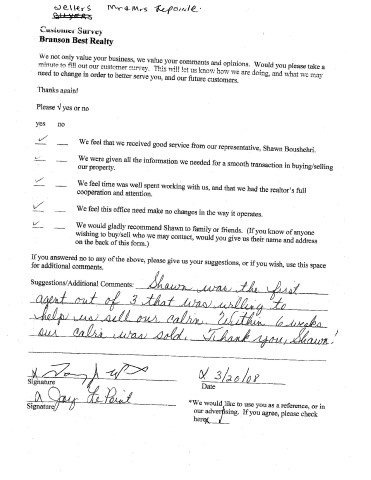 Sellers Mr & Mrs Lepointe.
BUYERS
Customer Survey
Branson Best Realty
We not only value your business, we value your comments and opinions. Would you please take a
minute to fill out our customer survey. This will let us know how we are doing, and what we may
need to change in order to better serve you, and our future customers.
Thanks again!
Please √ yes or no
yes no
✓ __ We feel that we received good service from our representative, Shawn Boushehri.
✓ __ We were given all the information we needed for a smooth transaction in buying/selling
our property.
✓ __ We feel time was well spent working with us, and that we had the realtor's full
cooperation and attention.
✓ __ We feel this office need make no changes in the way it operates.
✓ __ We would gladly recommend Shawn to family or friends. (If you know of anyone
wishing to buy/sell who we may contact, would you give us their name and address
on the back of this form.)
If you answered no to any of the above, please give us your suggestions, or if you wish, use this space
for additional comments.
Suggestions/Additional Comments: Shawn was the first
agent out of 3 that was willing to
help us sell our cabin. Within 6 weeks
our cabin was sold. Thank you, Shawn!
X
Signature
X 3/20/08
Date
Signature
*We would like to use you as a reference, or in
our advertising. If you agree, please check
here ✓